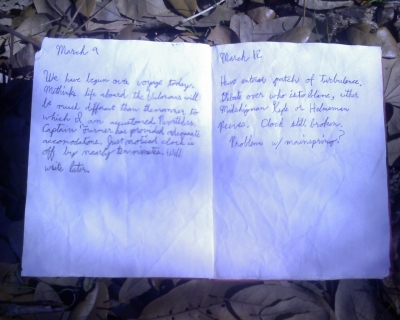 March 9
We have begun our voyage today.
Methink life aboard the will
be much different than the manner to
which I am accustomed. Nonetheless
Captain Turner has provided adequate
accomodations. Just noticed clock is
off by nearly ten minutes. Will
write later.
March 12
Have entered patch of turbulence,
debate over who is to blame, either
Midshipman Kyle or Helmsman
Reeves. Clock still broken.
Problem w/ mainspring?